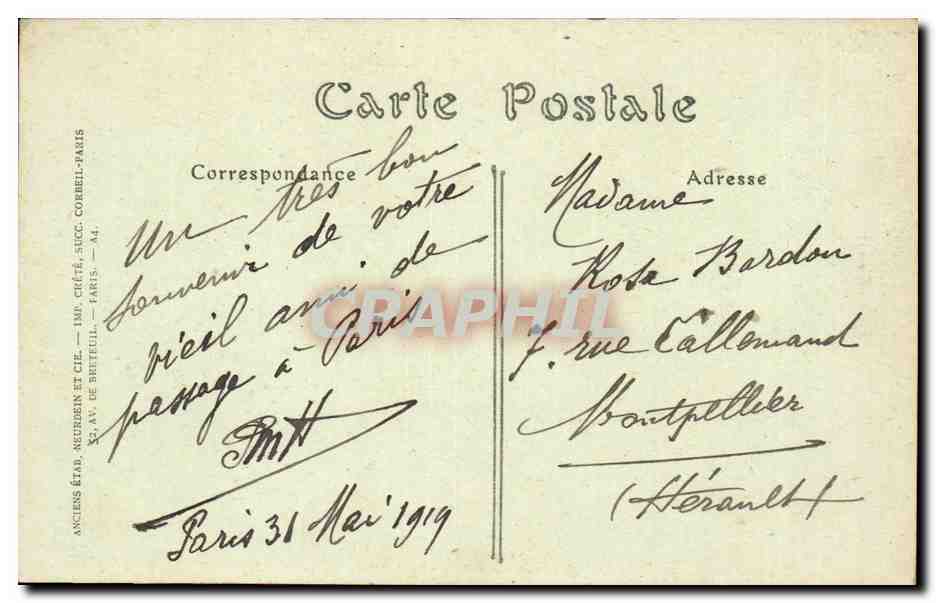 Carte Postale
Correspondance
Un très bon
souvenir de votre
vieil ami de
passage à Paris
Paris 31 Mai 1919
Adresse
Madame
Rosa Bardou
7. rue Lallemand
Montpellier
(Hérault)
ANCIENS ÉTAB. NEURDEIN ET CIE. — IMP. CRÉTÉ, SUCC. CORBEIL-PARIS
52, AV. DE BRETEUIL. — PARIS. — A4.
CRAPHIL